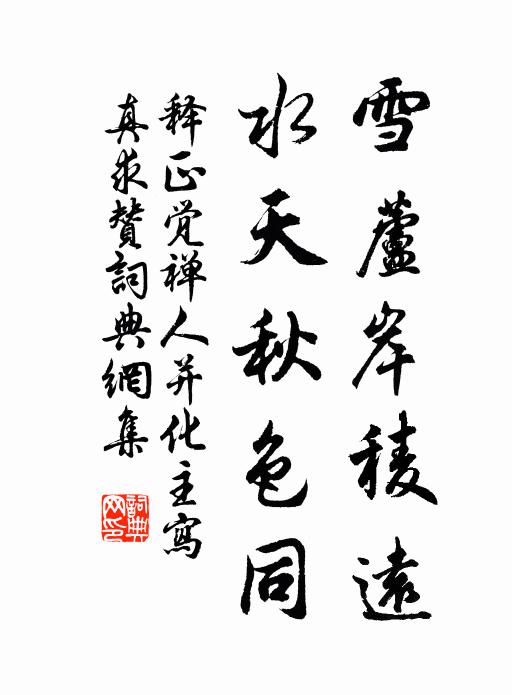 雪蘆岸稜遠
水天秋色同
释正觉禅人并化主寫
真求贊詞典網集
詞典網印